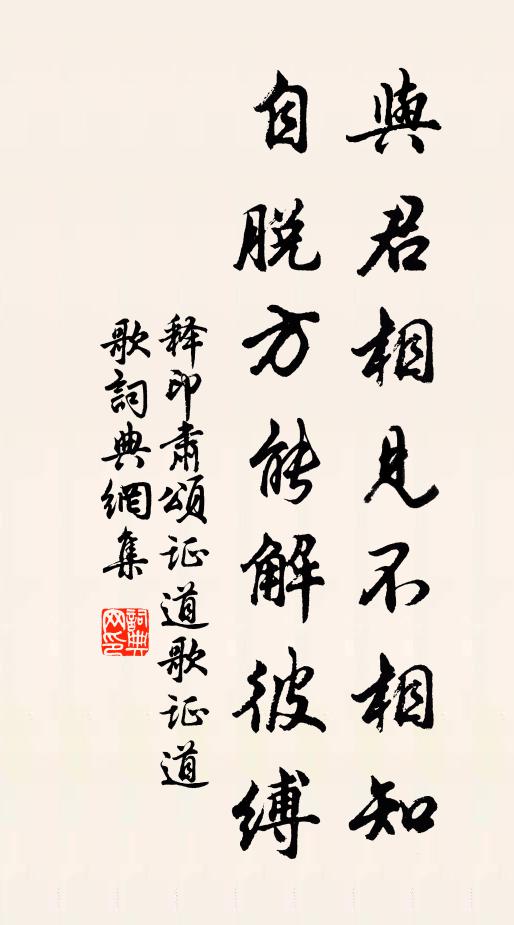 與君相見不相知
自脫方能解彼縛
释印肅頌证道歌证道
歌詞典網集
詞典網印